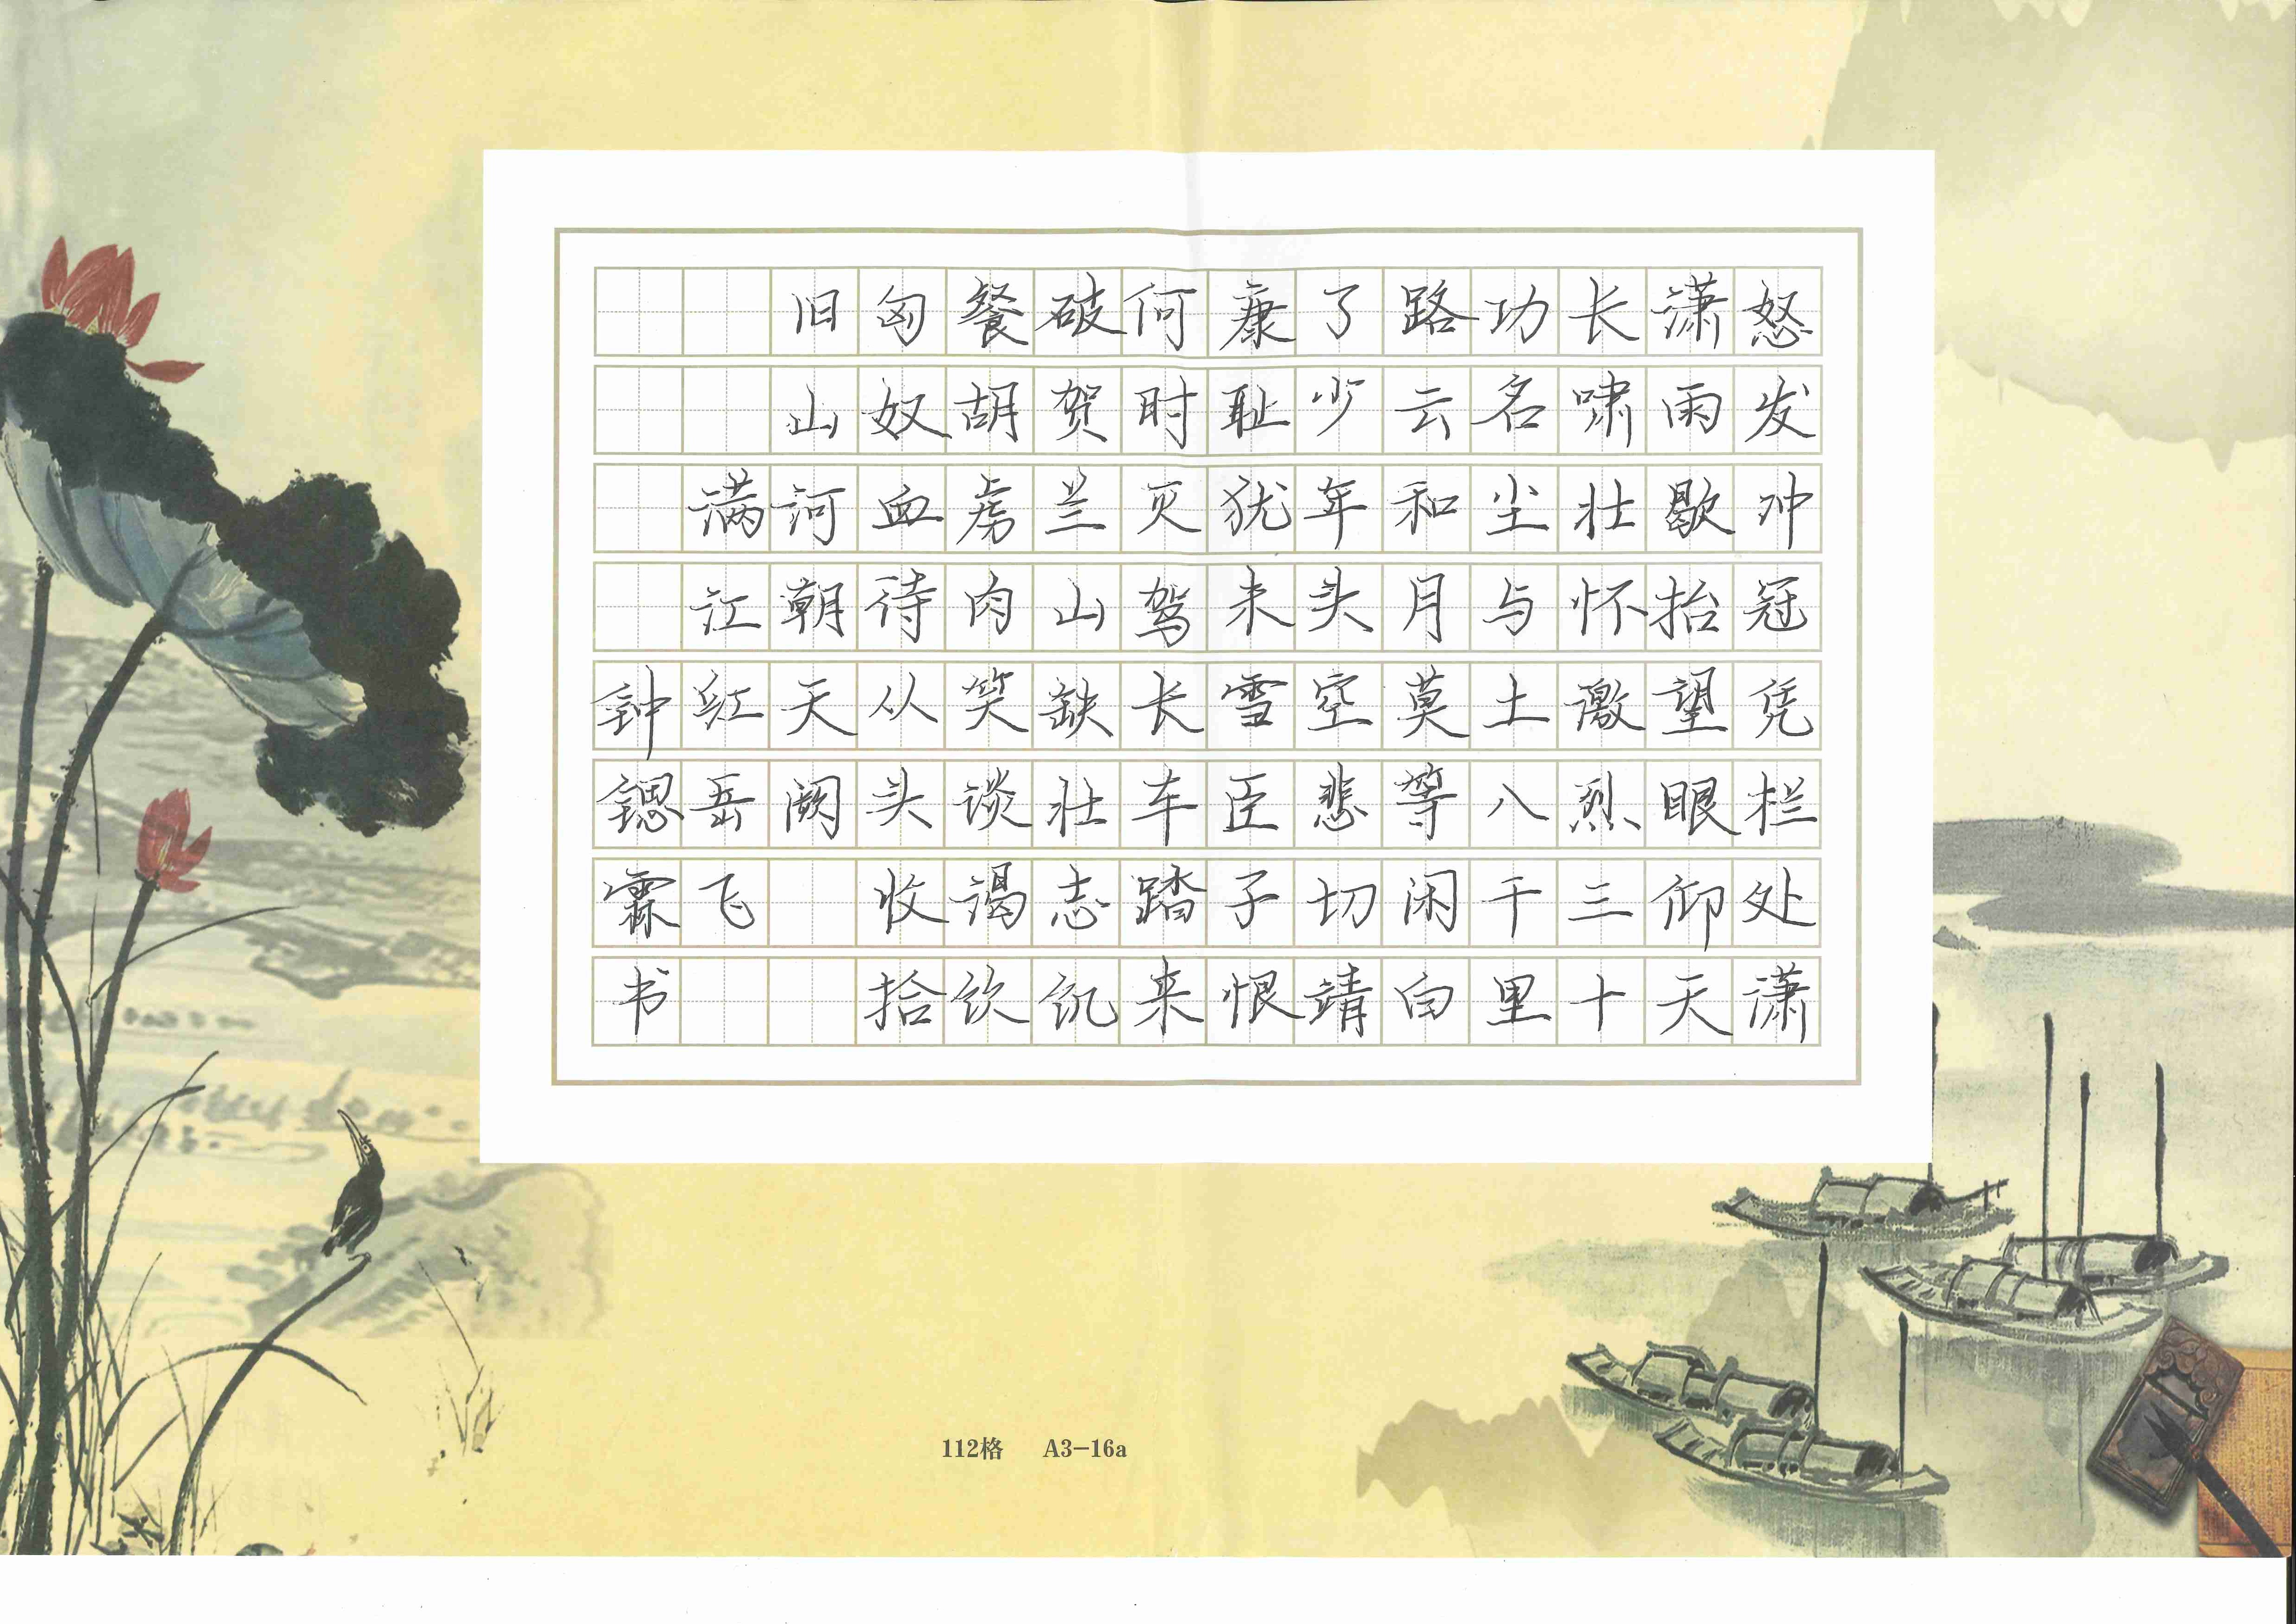 怒发冲冠凭栏处潇
潇雨歇抬望眼仰天
长啸壮怀激烈三十
功名尘与土八千里
路云和月莫等闲白
了少年头空悲切靖
康耻犹未雪臣子恨
何时灭驾长车踏来
破贺兰山缺壮志饥
餐胡虏肉笑谈渴饮
匈奴血待从头收拾
旧山河朝天阙
满江红岳飞
钟锶霖书
112格 A3-16a